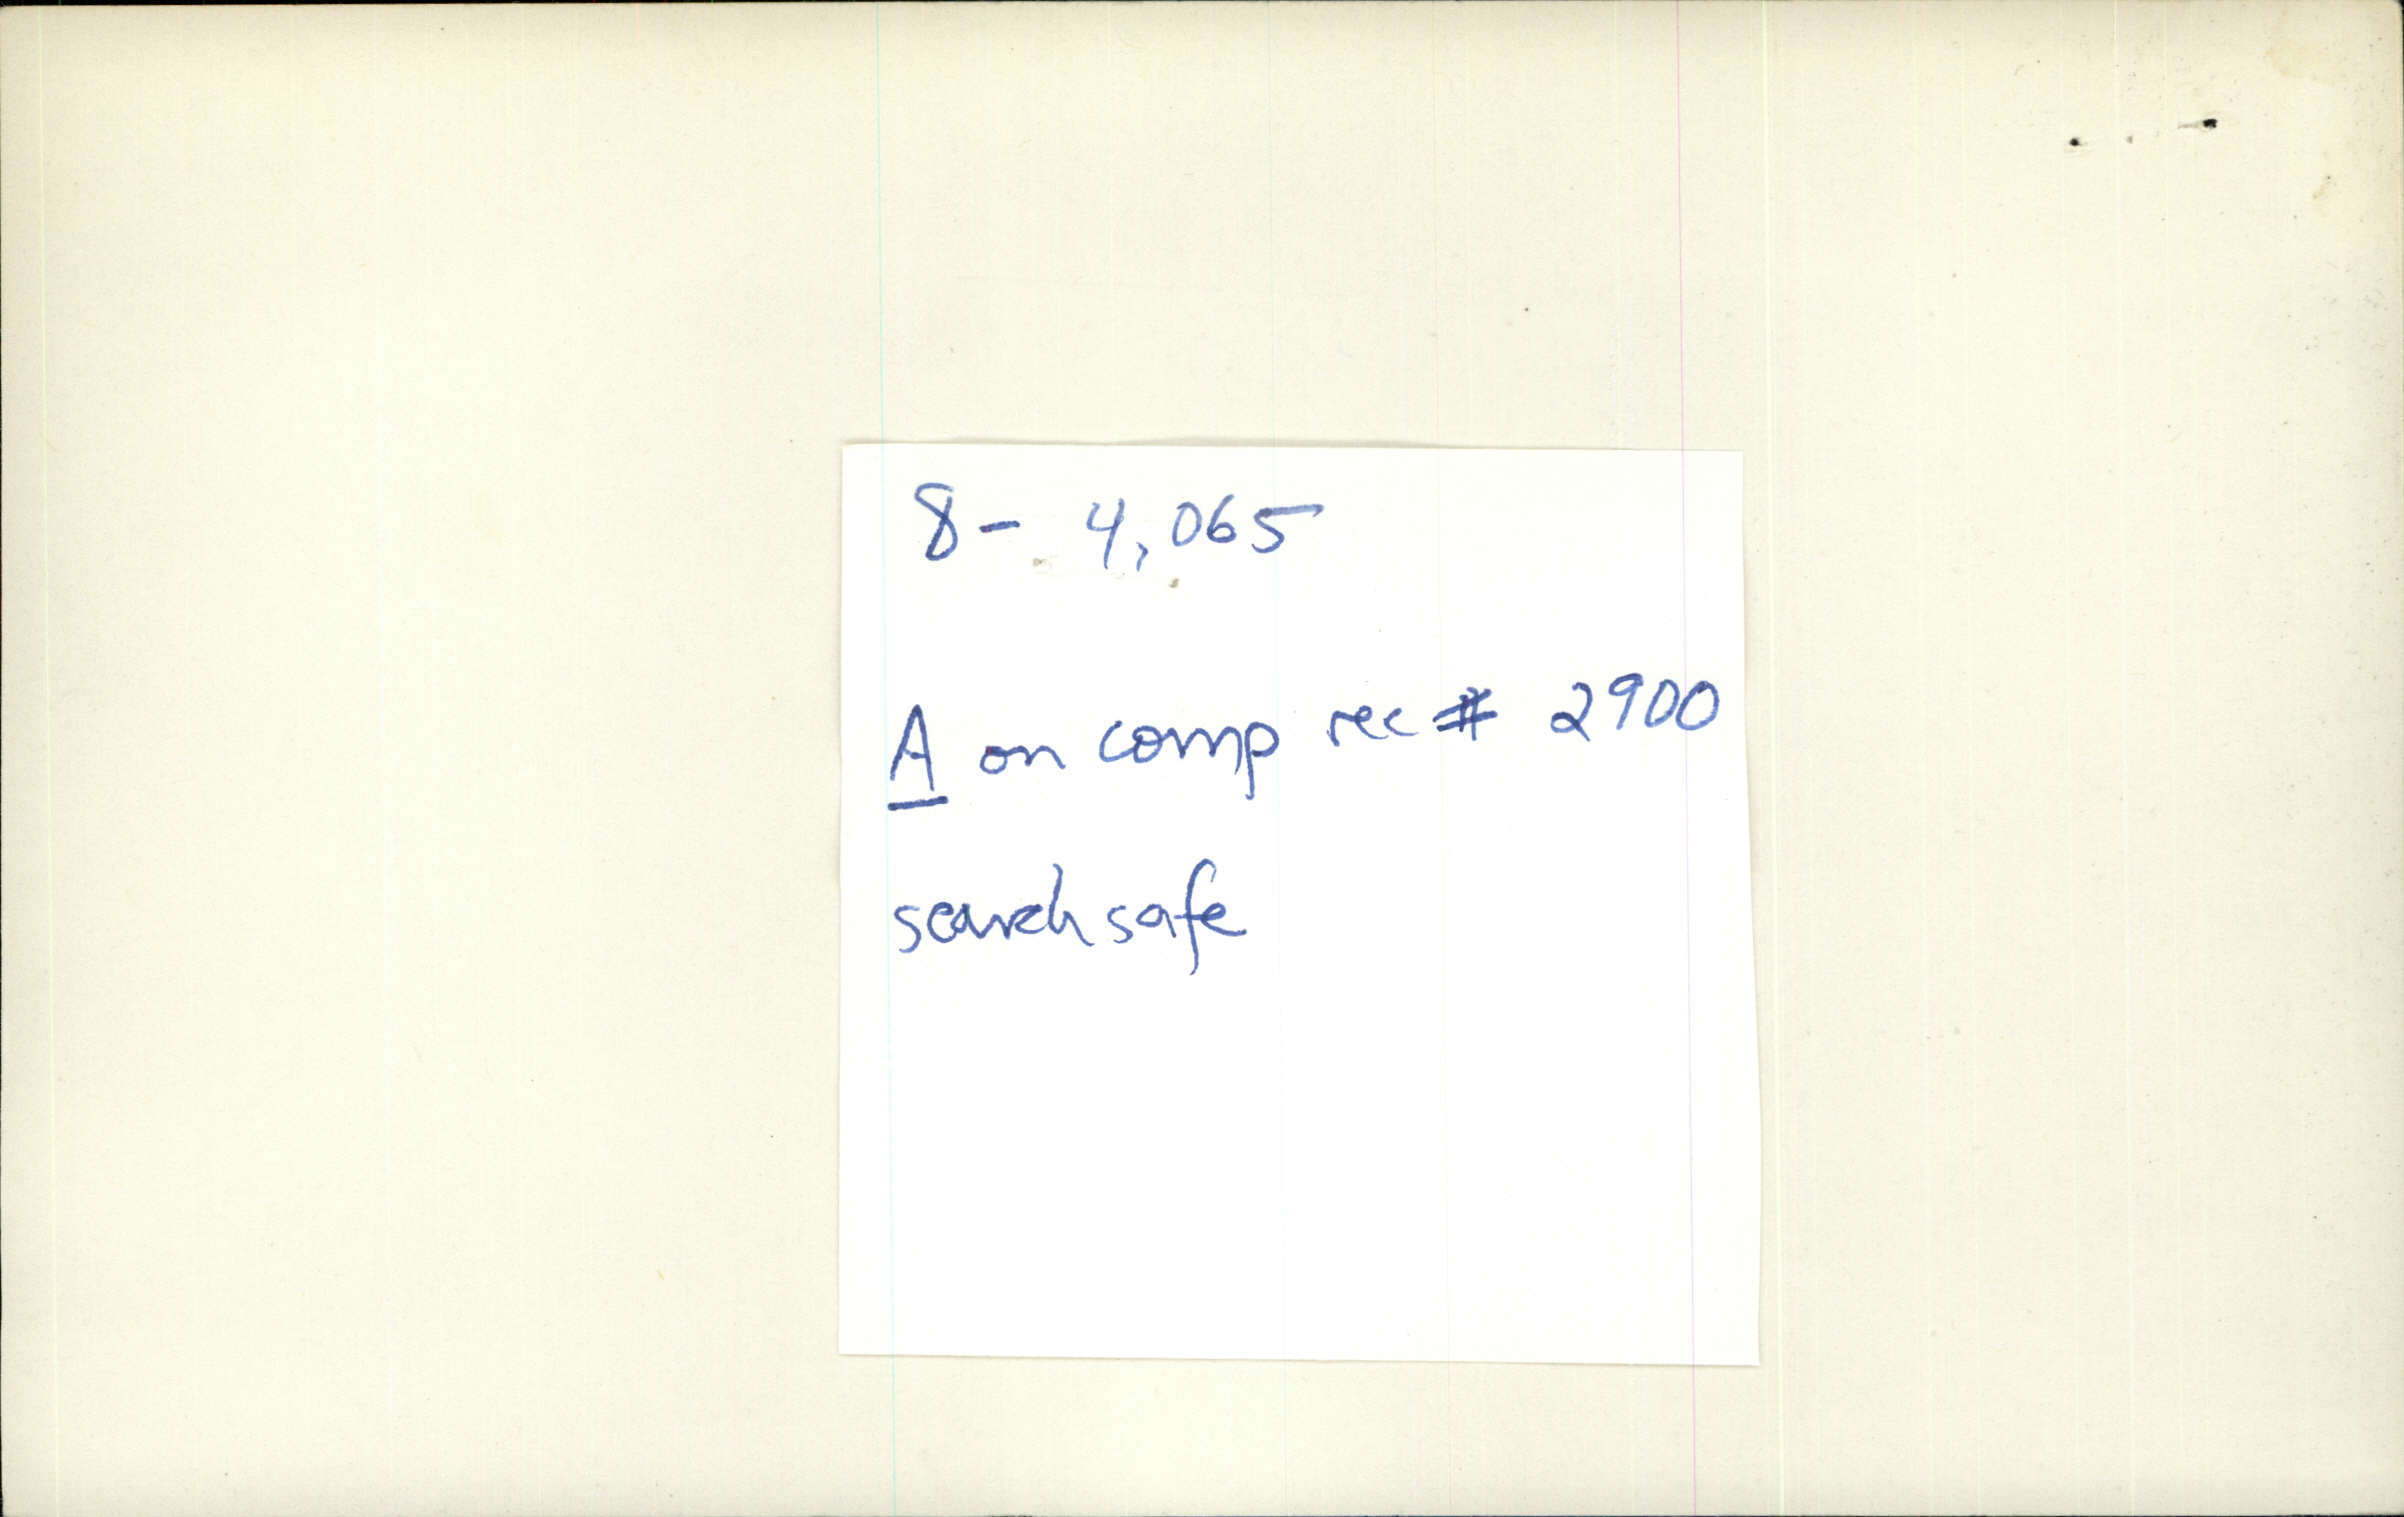 8- 4,065
A on comp rec # 2900
search safe